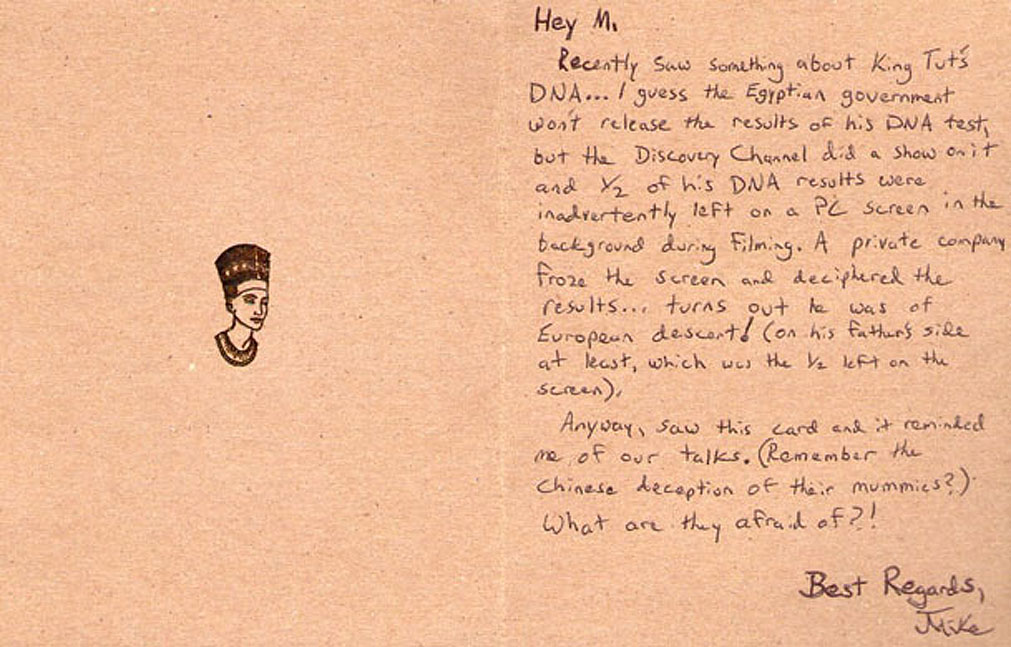 Hey M.
Recently saw something about King Tut's
DNA... I guess the Egyptian government
won't release the results of his DNA test,
but the Discovery Channel did a show on it
and 1/2 of his DNA results were
inadvertently left on a PC screen in the
background during filming. A private company
froze the screen and deciphered the
results... turns out he was of
European descent! (on his father's side
at least, which was the 1/2 left on the
screen).
Anyway, saw this card and it reminded
me of our talks. (Remember the
Chinese deception of their mummies?)
What are they afraid of?!
Best Regards,
Mike